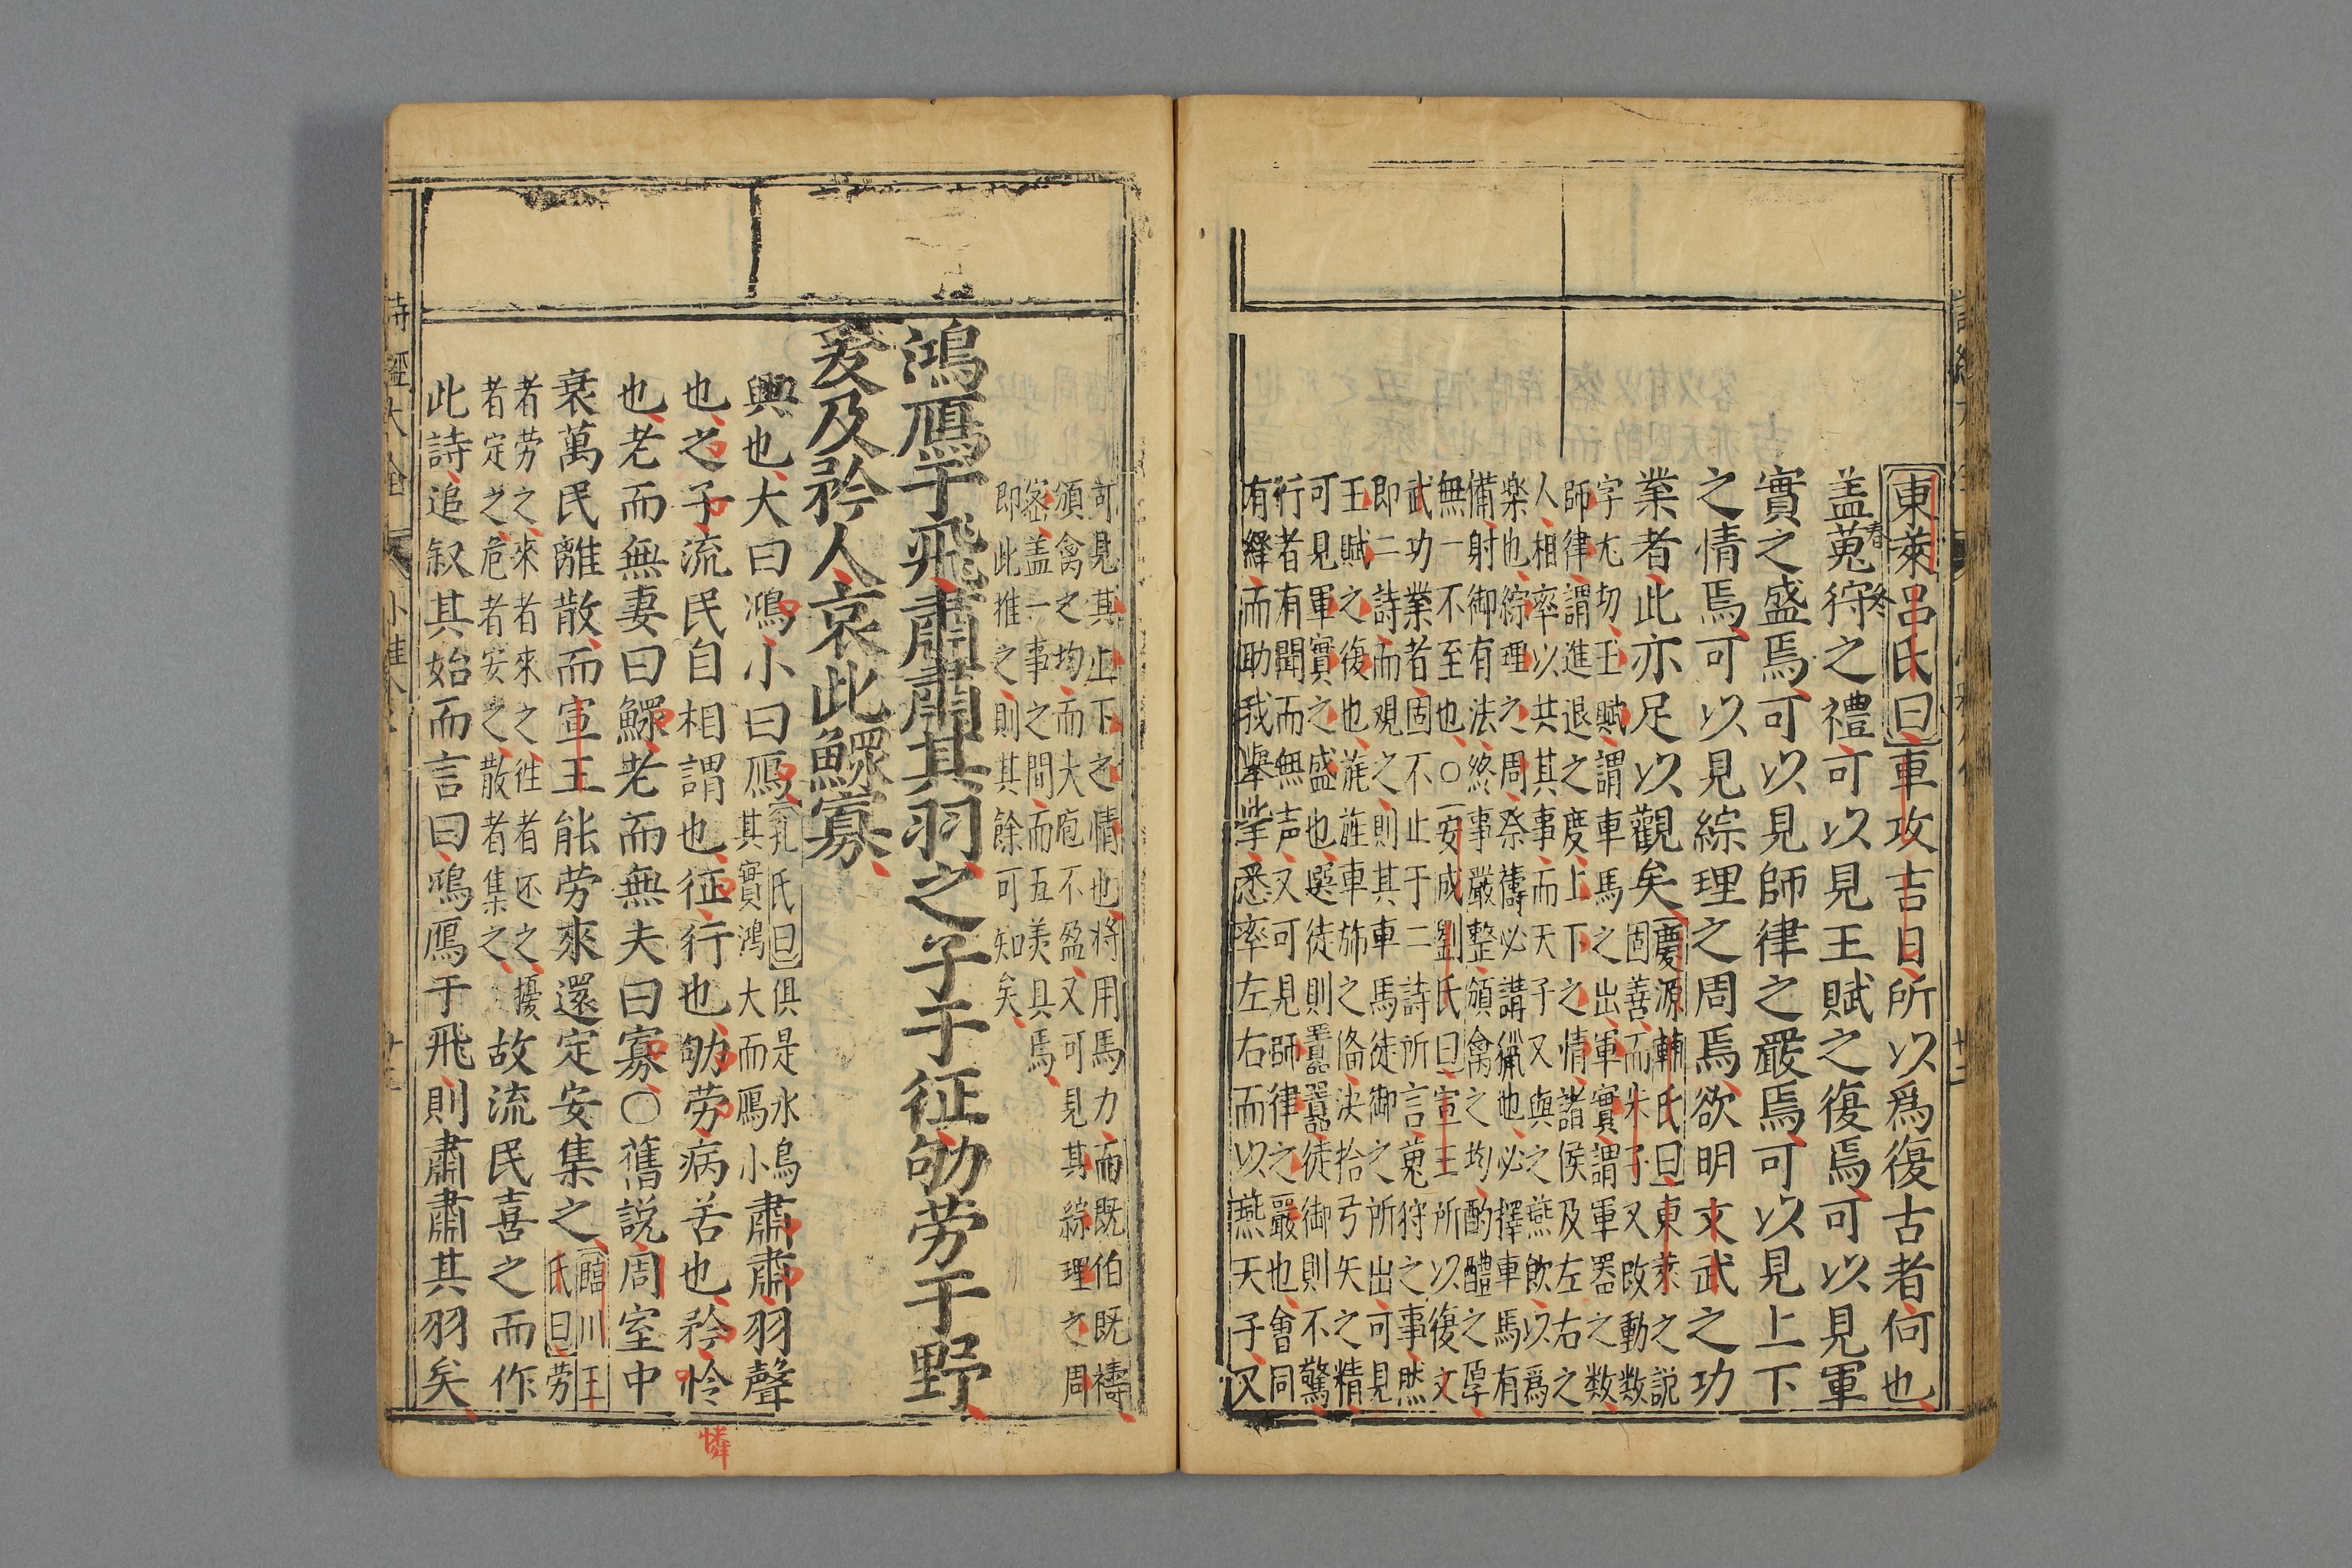 東萊呂氏曰車攻吉日所以爲復古者何也
盖蒐狩之禮可以見王賦之復焉可以見軍
春
冬
實之盛焉可以見師律之嚴焉可以見上下
之情焉可以見綜理之周焉欲明文武之功
業者此亦足以觀矣
慶源輔氏曰東萊之説
固善而朱子又改動數
字尢切王賦謂車馬之出軍實謂軍器之数
師律謂進退之度上下之情諸侯及左右之
人相率以共其事而天子又與之燕飲以爲
楽也綜理之周祭禱必講獵也必擇車馬有
備射御有法終事嚴整頒禽之均酌醴之厚
無一不至也○安成劉氏曰宣王所以復文
武功業者固不止于二詩所言蒐狩之事然
即二詩而观之則其車馬徒御之所出可見
王賦之復也旄旌車斾之俻决拾弓矢之精
可見軍實之盛也選徒則嚻嚻徒御則不驚
行者有聞而無声又可見師律之嚴也會同
有繹而助我擧挙悉率左右而以燕天子又
可見其上下之情也将用馬力而既伯既禱
頒禽之均而大庖不盈又可見其綜理之周
宻盖一事之間而五美具焉
即此推之則其餘可知矣
鴻鴈于飛肅肅其羽之子于征劬劳于野
爰及矜人哀此鰥寡
興也大曰鴻小曰鴈
孔氏曰俱是水鳥
其實鴻大而鴈小
肅肅羽聲
也之子流民自相謂也征行也劬劳病苦也矜怜
也老而無妻曰鰥老而無夫曰寡○舊説周室中
衰萬民離散而宣王能劳來還定安集之
臨川王
氏曰劳
者劳之來者來之往者还之擾
者定之危者安之散者集之
故流民喜之而作
此詩追叙其始而言曰鴻鴈于飛則肅肅其羽矣
憐
詩經大全
小雅